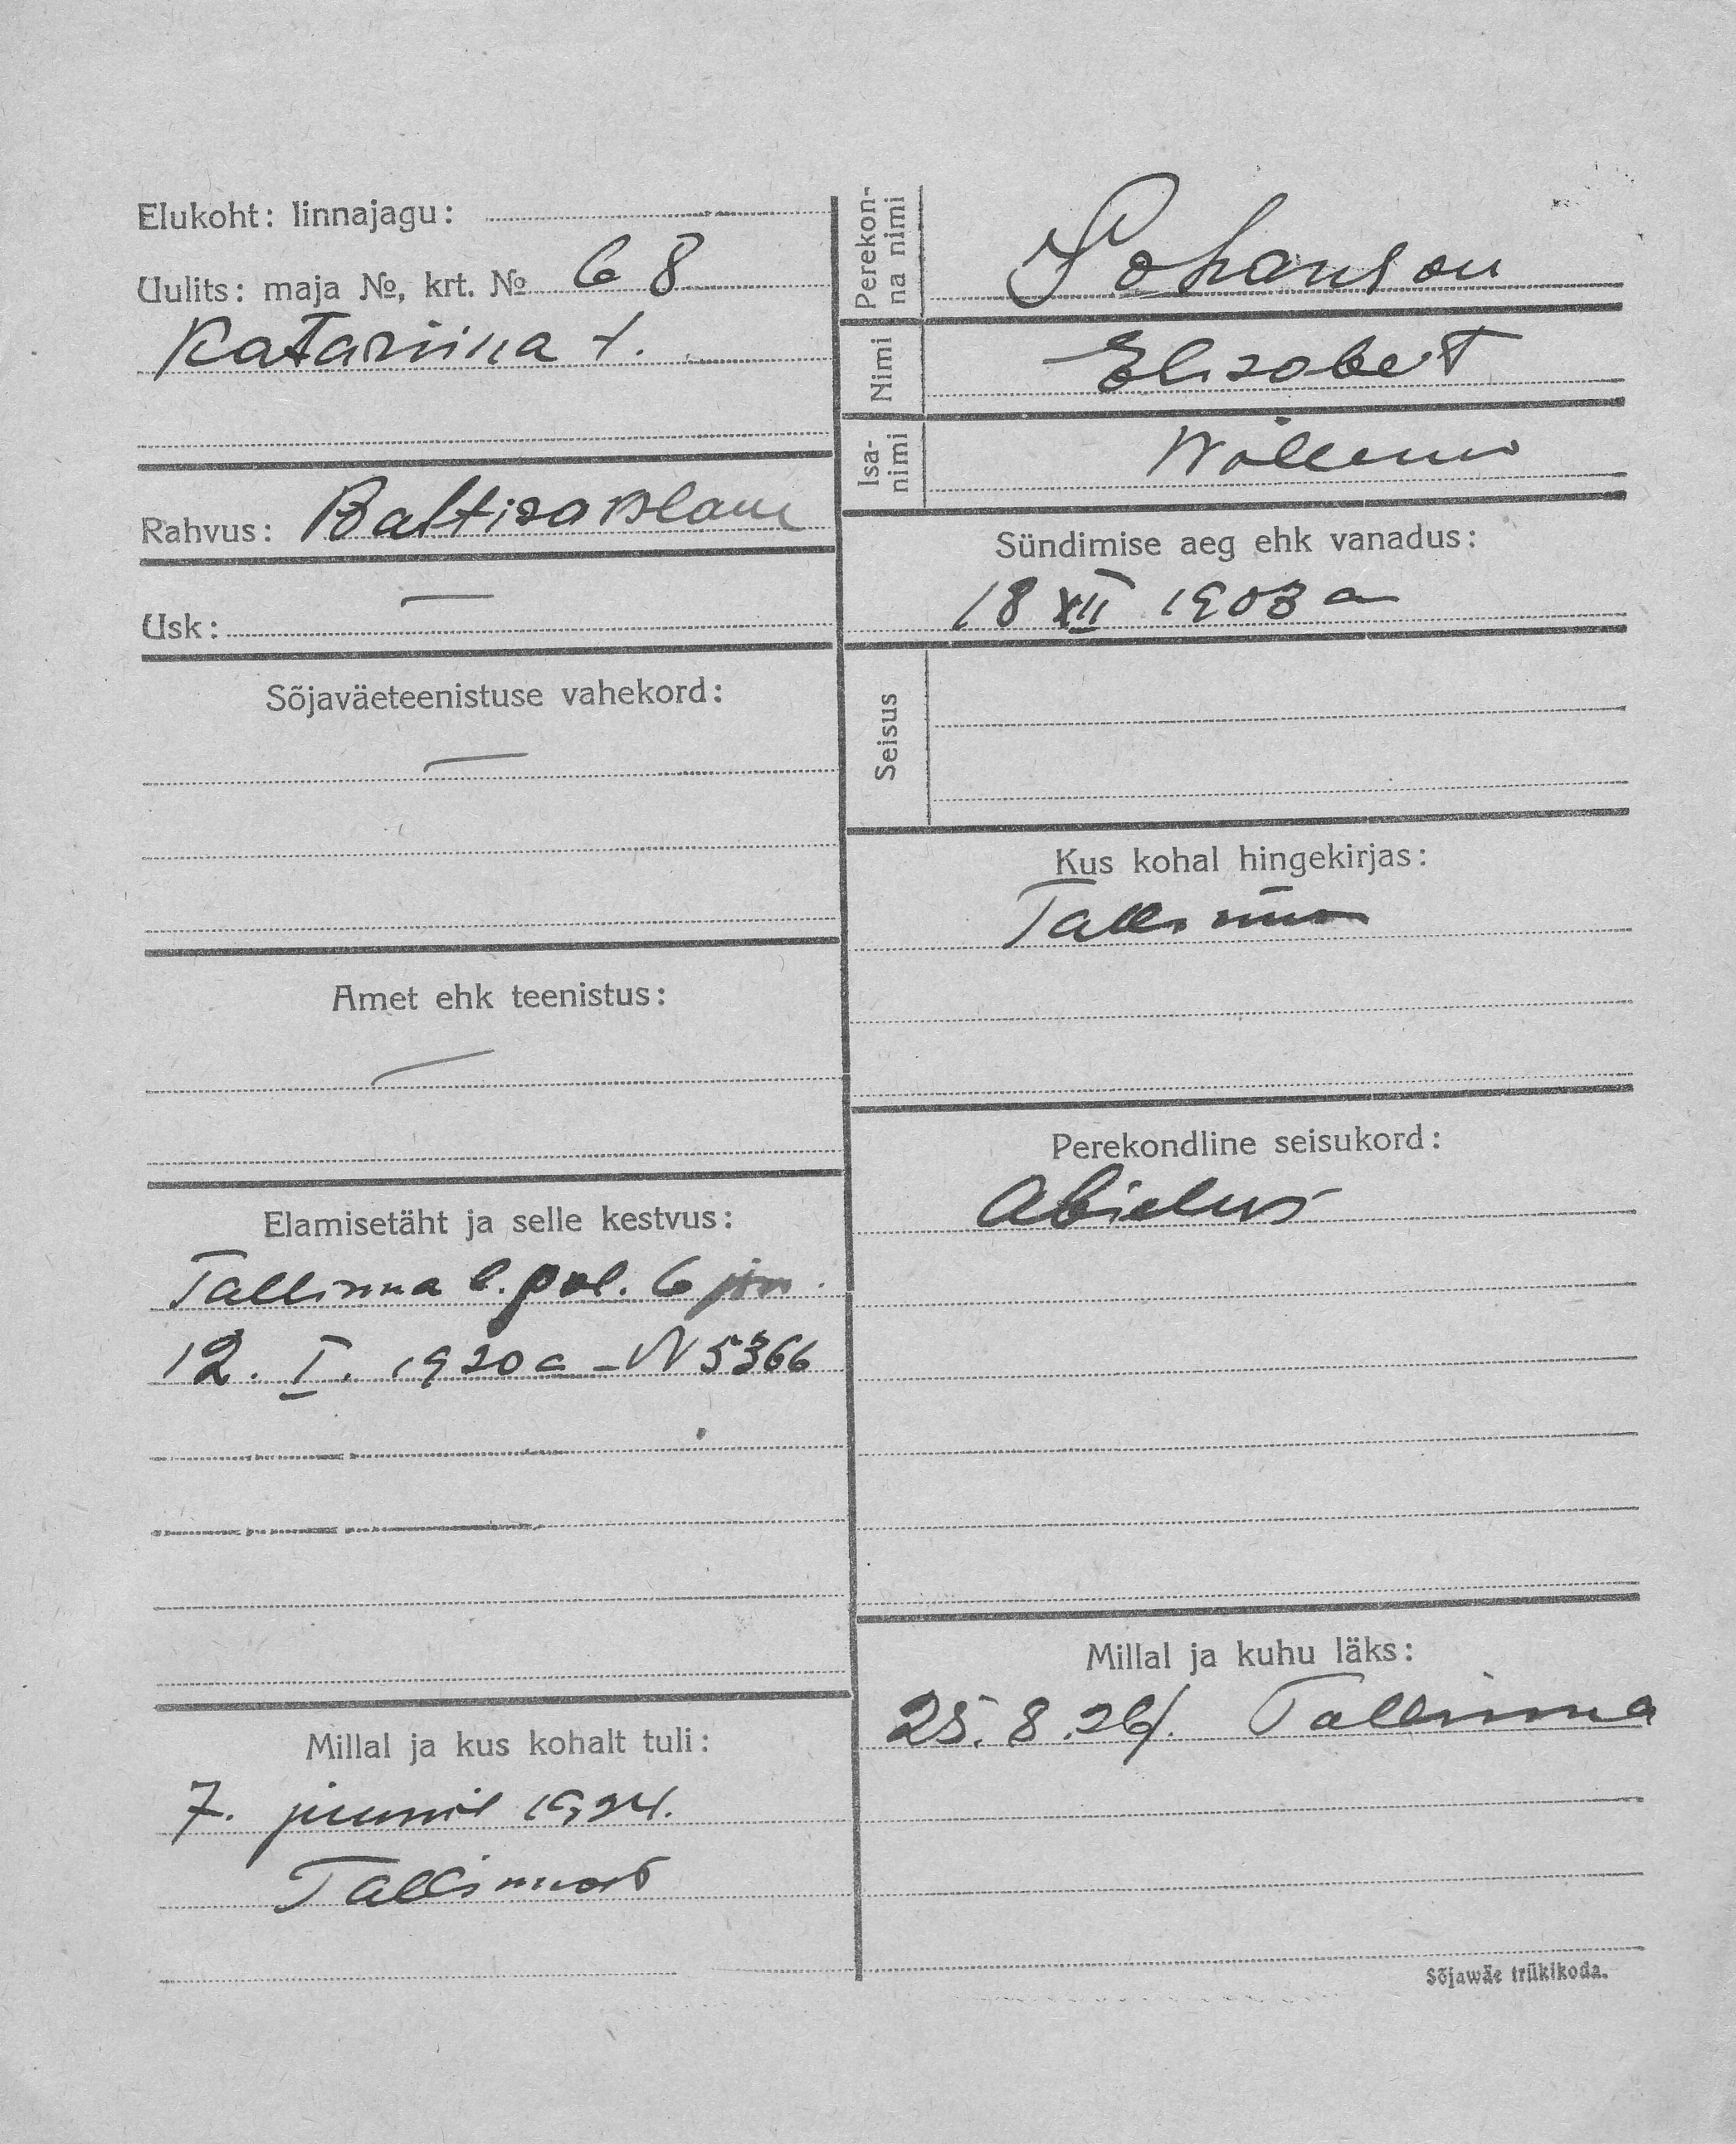 Elukoht: linnajagu:
Uulits: maja №, krt. № 68
Katariina t.
Rahvus: Baltisakslane
Usk: —
Sõjaväeteenistuse vahekord:
—
Amet ehk teenistus:
—
Elamisetäht ja selle kestvus:
Tallinna l. pol. 6 jsk.
12. I. 1920 a – N 5366
Millal ja kus kohalt tuli:
7. juunil 1924.
Tallinnast
Perekonna nimi
Johanson
Nimi
Elisabet
Isanimi
Sündimise aeg ehk vanadus:
18 XII 1903 a
Seisus
Kus kohal hingekirjas:
Tallinna
Perekondline seisukord:
Abielus
Millal ja kuhu läks:
25. 8. 24. Tallinna
Sõjawäe trükikoda.